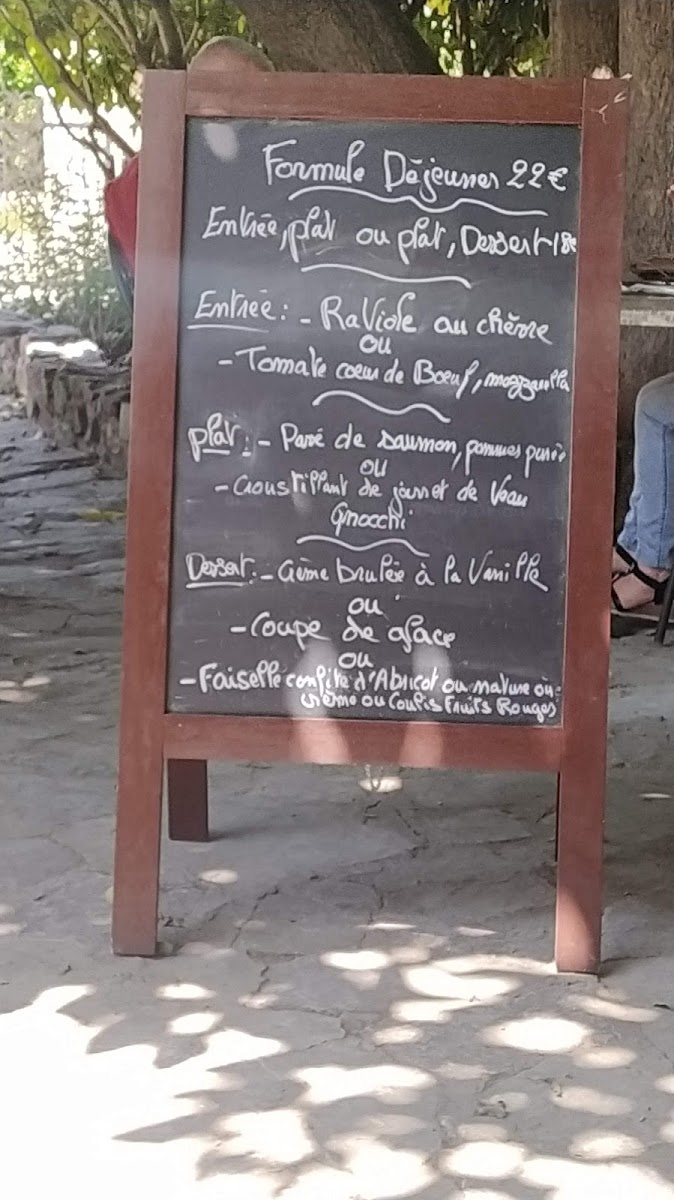 Formule Déjeuner 22€
Entrée, plat ou plat, Dessert 18€
Entrée: - Raviole au chèvre
ou
- Tomate coeur de Boeuf, mozzarella
plat: - Pavé de saumon, pommes purée
ou
- Croustillant de jarret de Veau
Gnocchi
Dessert: - Crème brulée à la Vanille
ou
- Coupe de glace
ou
- Faiselle confite d'Abricot ou nature ou
crème ou Coulis Fruits Rouges